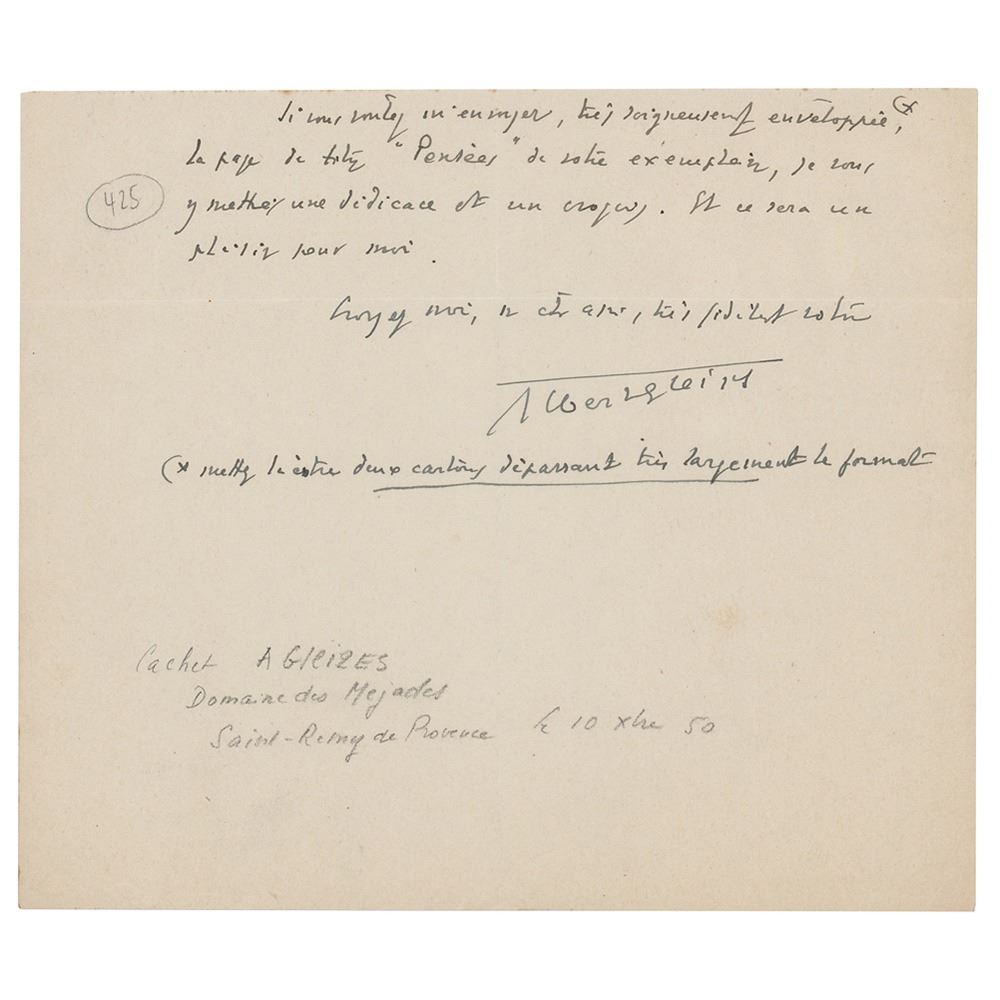 Si vous voulez m'envoyer, très soigneusement enveloppée (x,
la page de titre "Pensées" de votre exemplaire, je vous
425
y mettrai une dédicace et un croquis. Et ce sera un
plaisir pour moi.
Croyez moi, cher ami, très fidèlement votre
Albert Gleizes
(x mettez la entre deux cartons dépassant très largement le format
Cachet A GLEIZES
Domaine des Mejades
Saint-Remy de Provence le 10 xbre 50